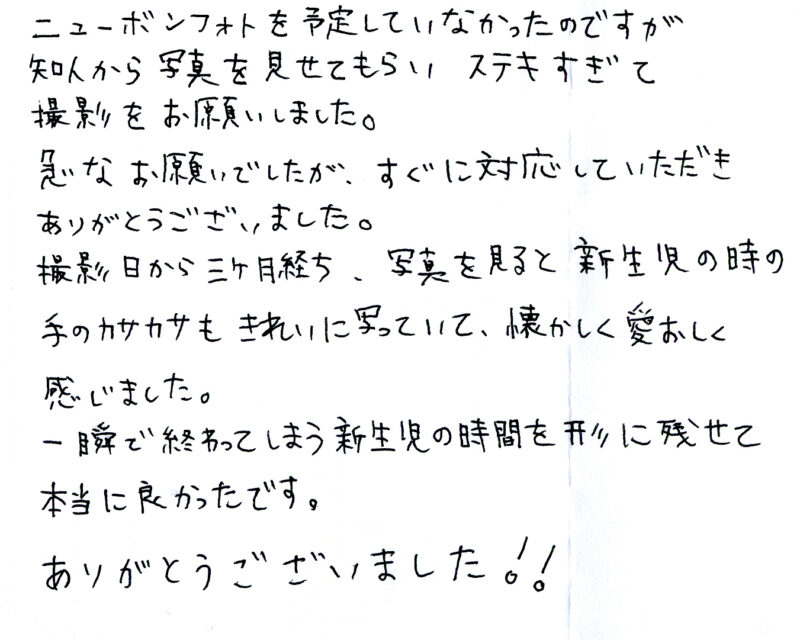 ニューボンフォトを予定していなかったのですが
知人から写真を見せてもらい ステキすぎて
撮影をお願いしました。
急なお願いでしたが、すぐに対応していただき
ありがとうございました。
撮影日から三ヶ月経ち、写真を見ると新生児の時の
手のカサカサもきれいに写っていて、懐かしく愛おしく
感じました。
一瞬で終わってしまう新生児の時間を形に残せて
本当に良かったです。
ありがとうございました!!